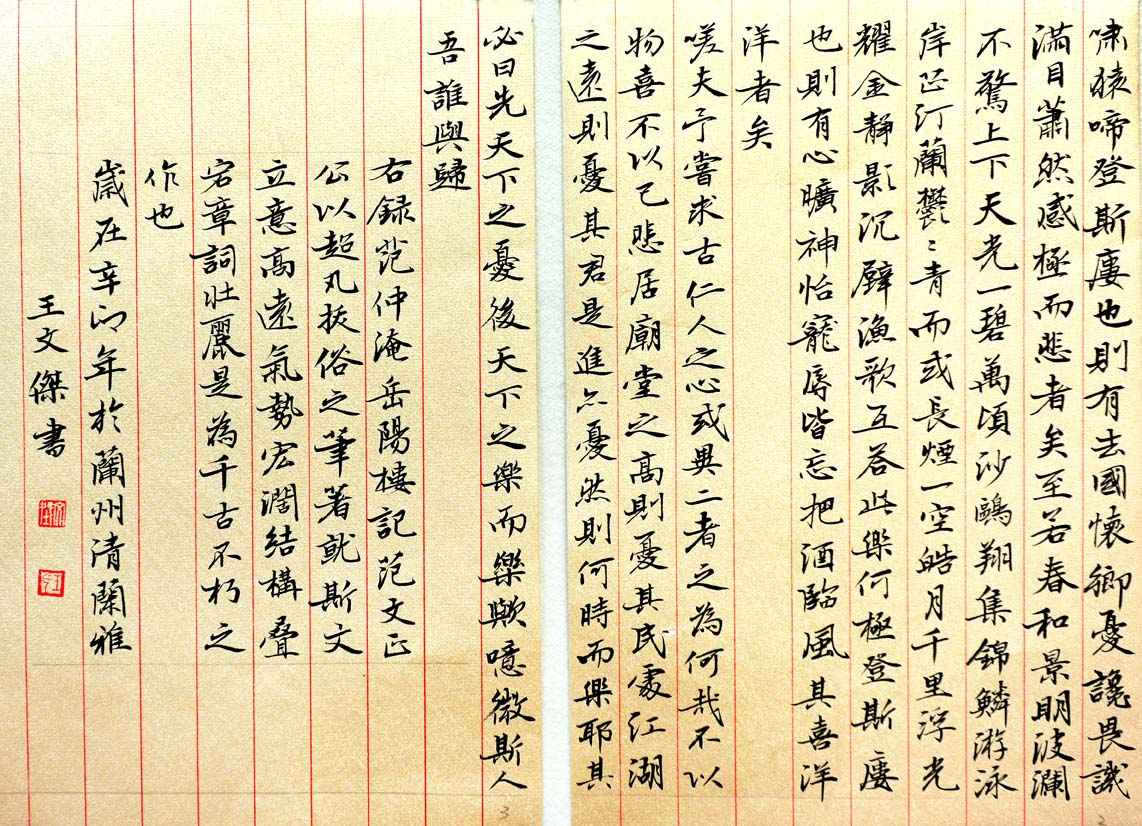 啸猿啼登斯廔也則有去國懷鄉憂讒畏譏
滿目蕭然感極而悲者矣至若春和景明波瀾
不驚上下天光一碧萬頃沙鷗翔集錦鱗游泳
岸芷汀蘭鬱〻青而或長煙一空皓月千里浮光
耀金靜影沉璧漁歌互答此樂何極登斯廔
也則有心曠神怡寵辱皆忘把酒臨風其喜洋
洋者矣
嗟夫予嘗求古仁人之心或異二者之為何哉不以
物喜不以己悲居廟堂之高則憂其民處江湖
之遠則憂其君是進亦憂然則何時而樂耶其
必曰先天下之憂後天下之樂而樂歟噫微斯人
吾誰與歸
右録范仲淹岳陽樓記范文正
公以超凡拔俗之筆著就斯文
立意高遠氣勢宏濶結構叠
宕章詞壯麗是為千古不朽之
作也
歲在辛卯年於蘭州清蘭雅
王文傑書
3
2